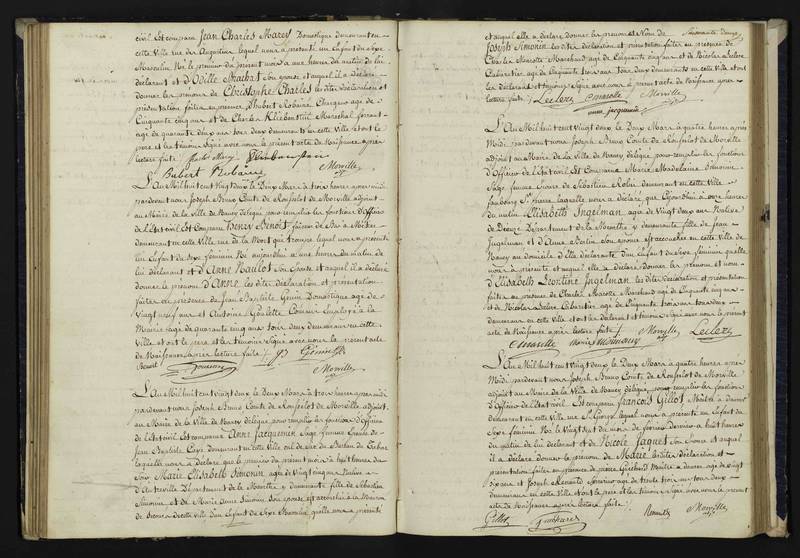 civil Est comparu Jean Charles Marcy Domestique demeurant en
cette Ville rue des Augustins lequel nous a présenté un Enfant du Sexe
Masculin Né le premier du présent mois à une heure du matin de lui
déclarant et d'Odille Machat Son épouse et auquel il a déclaré
donner les prénoms de Christophe Charles les dites déclaration et
présentation faites en présence d'Hubert Robaine Chargeur agé de
Cinquante cinq ans et de Charles Maréchal ferrant
agé de quarante deux ans tous deux demeurants en cette Ville et ont le
père et les témoins signé avec nous le présent acte de Naissance après
lecture faite
Hubert Robaine Morville
L'An Mil huit cent Vingt deux le Deux Mars à trois heures après midi
pardevant nous Joseph Bruno Comte de Ronfalot de Morville adjoint
au Maire de la Ville de Nancy délégué pour remplir les fonctions d'Officier
de l'Etat civil Est Comparu Henry Benoit faiseur de Bas à Métier
demeurant en cette Ville rue de la lequel nous a présenté
un Enfant du Sexe féminin Né aujourd'hui à une heure du matin de
lui déclarant et d'Anne Vaulot Son épouse et auquel il a déclaré
donner le prénom d'Anne les dites déclaration et présentation
faites en présence de Jean Baptiste Genin Domestique agé de
Vingt neuf ans et Antoine Goulette Commis Employé à la
Mairie agé de quarante cinq ans tous deux demeurants en cette
Ville et ont le père et les témoins signé avec nous le présent acte
de Naissance après lecture faite
Benoit Morville
L'An Mil huit cent Vingt deux le Deux Mars à trois heures après midi
pardevant nous Joseph Bruno Comte de Ronfalot de Morville adjoint
au Maire de la Ville de Nancy délégué pour remplir les fonctions d'Officier
de l'Etat civil Est comparue Anne Jacquemin Sage femme Epouse de
Jean Baptiste demeurant en cette Ville
laquelle nous a déclaré que le premier du présent mois à huit heures du
Soir Marie Elisabeth Simonin agée de Vingt cinq ans Native
d'Autreville Département de la Meurthe y demeurante fille de Sébastien
Simonin et de Marie Anne Simonin Son épouse est accouchée à la Maison
de Secours de cette Ville d'un Enfant du Sexe Masculin qu'elle nous a présenté
et auquel elle a déclaré donner les prénoms et Nom de
Joseph Simonin les dites déclaration et présentation faites en présence de
Charles Marotte Marchand agé de Cinquante cinq ans et de Nicolas Leclerc
Cabaretier agé de Cinquante trois ans tous deux demeurants en cette Ville et ont
les déclarant et témoins signé avec nous le présent acte de Naissance après
lecture faite Leclerc Marotte Morville
L'An Mil huit cent Vingt deux le Deux Mars à quatre heures après
Midi pardevant nous Joseph Bruno Comte de Ronfalot de Morville
adjoint au Maire de la Ville de Nancy délégué pour remplir les fonctions
d'Officier de l'Etat civil Est Comparue Marie Madelaine Simonin
Sage femme Epouse de Sébastien Robin demeurant en cette Ville
faubourg St pierre laquelle nous a déclaré que Cejourd'hui à onze heures
du matin Elisabeth Ingelman agée de Vingt deux ans Native
de Département de la Meurthe y demeurante fille de Jean
Ingelman et d'Anne Son épouse est accouchée en cette Ville de
Nancy au domicile d'elle déclarante d'un Enfant du Sexe féminin qu'elle
nous a présenté et auquel elle a déclaré donner les prénoms et nom
d'Elisabeth Léontine Ingelman les dites déclaration et présentation
faites en présence de Charles Marotte Marchand agé de Cinquante cinq ans
et de Nicolas Leclerc Cabaretier agé de Cinquante trois ans tous deux
demeurants en cette Ville et ont les déclarant et témoins signé avec nous le présent
acte de Naissance après lecture faite Morville Leclerc
L'An Mil huit cent Vingt deux le Deux Mars à quatre heures après
Midi pardevant nous Joseph Bruno Comte de Ronfalot de Morville
adjoint au Maire de la Ville de Nancy délégué pour remplir les fonctions
d'Officier de l'Etat civil Est comparu François Gillot Maître à danser
demeurant en cette Ville rue St George lequel nous a présenté un Enfant du
Sexe féminin Né le Vingt sept du mois de février dernier à huit heures
du matin de lui déclarant et de Nicole Jaquet Son épouse et auquel
il a déclaré donner le prénom de Marie les dites déclaration et
présentation faites en présence de pierre Maître à danser agé de Vingt
six ans et Joseph agé de trente trois ans tous deux
demeurants en cette Ville et ont le père et les témoins signé avec nous le présent
acte de Naissance après lecture faite
Gillot Morville